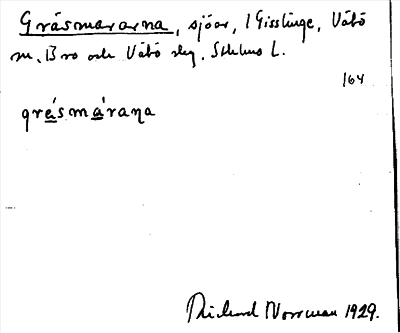 Gräsmararna, sjöar, 1 Gisslinge, Vätö
sn, Bro och Vätö skg, Sthlms L.
164
gräsmárana
Richard Norrman 1929.